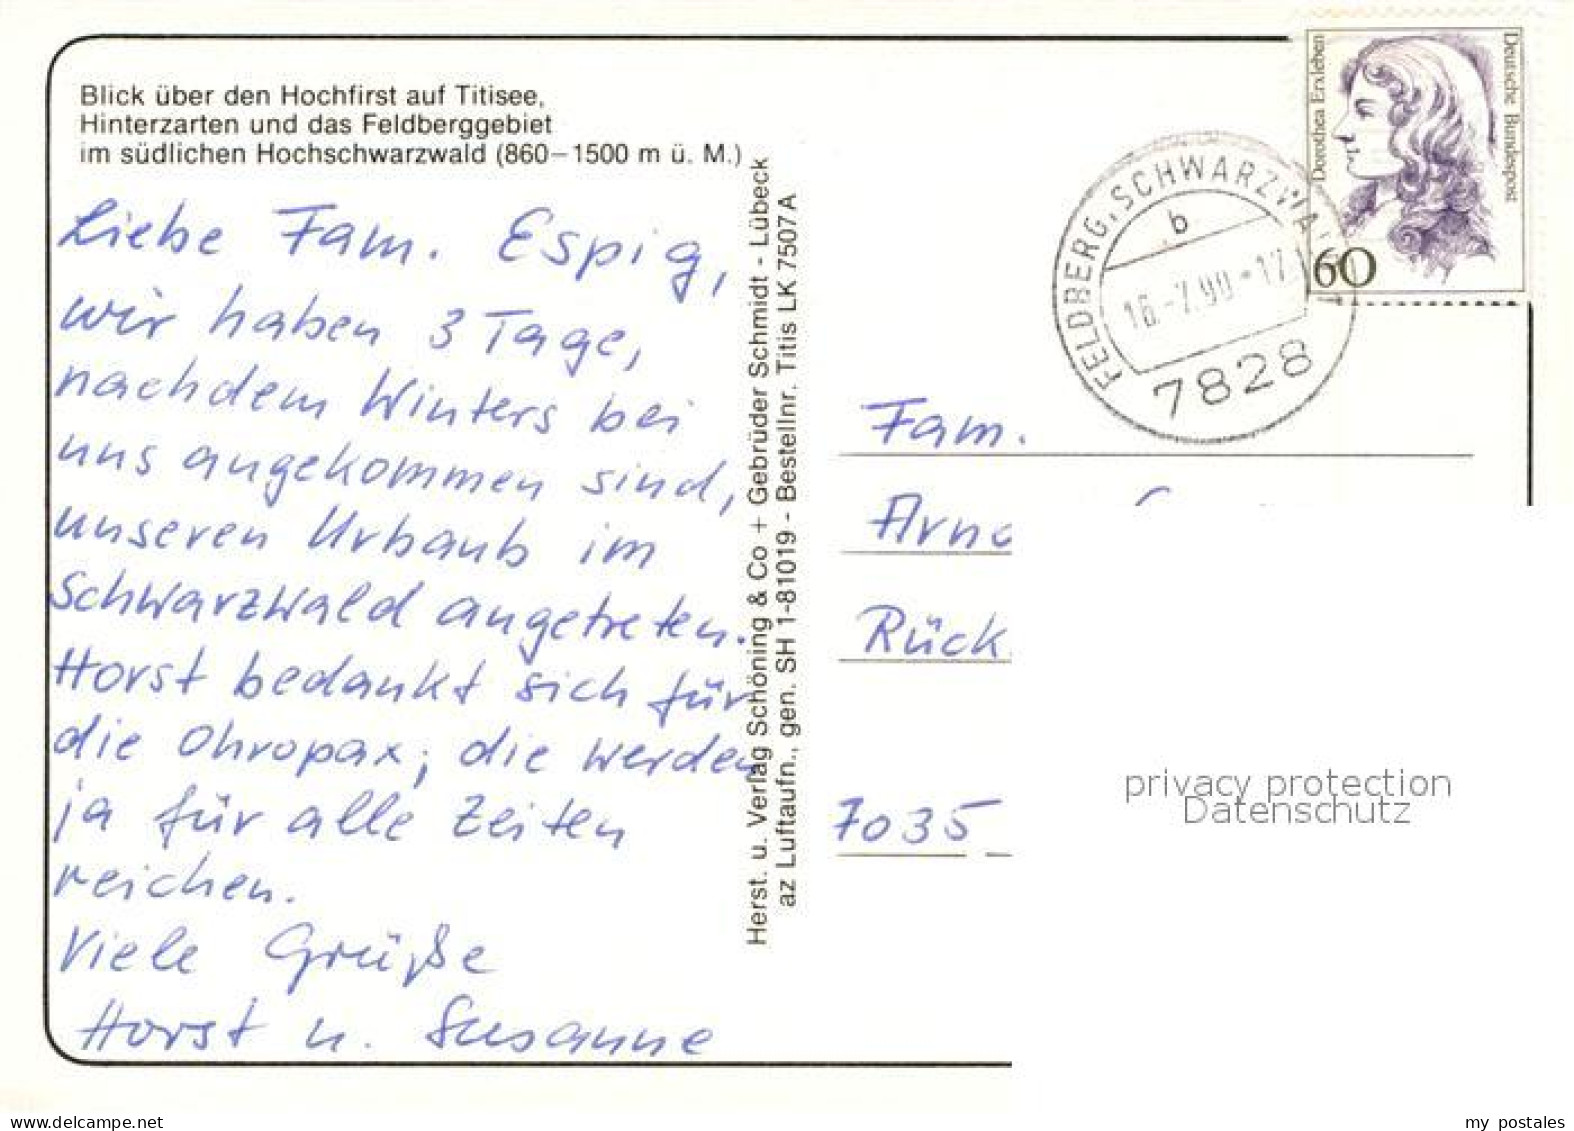 Blick über den Hochfirst auf Titisee,
Hinterzarten und das Feldberggebiet
im südlichen Hochschwarzwald (860–1500 m ü. M.)
Liebe Fam. Espig,
wir haben 3 Tage,
nachdem Winters bei
uns angekommen sind,
unseren Urbaub im
Schwarzwald angetreten.
Horst bedankt sich für
die Ohropax; die werden
ja für alle Zeiten
reichen.
Viele Grüße
Horst u. Susanne
Herst. u. Verlag Schöning & Co + Gebrüder Schmidt - Lübeck
az Luftaufn., gen. SH 1-81019 - Bestellnr. Titis LK 7507 A
FELDBERG, SCHWARZWA
b
16.-7.90-17
7828
Dorothea Erxleben
Deutsche Bundespost
60
Fam.
Arno
Rück
7035
privacy protection
Datenschutz
my postales